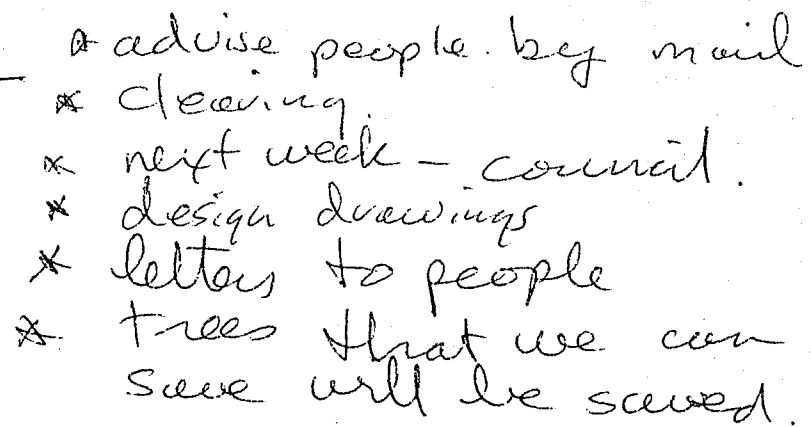 * advise people by mail
* clearing.
* next week – council.
* design drawings
* letters to people
* trees that we can
save will be saved.